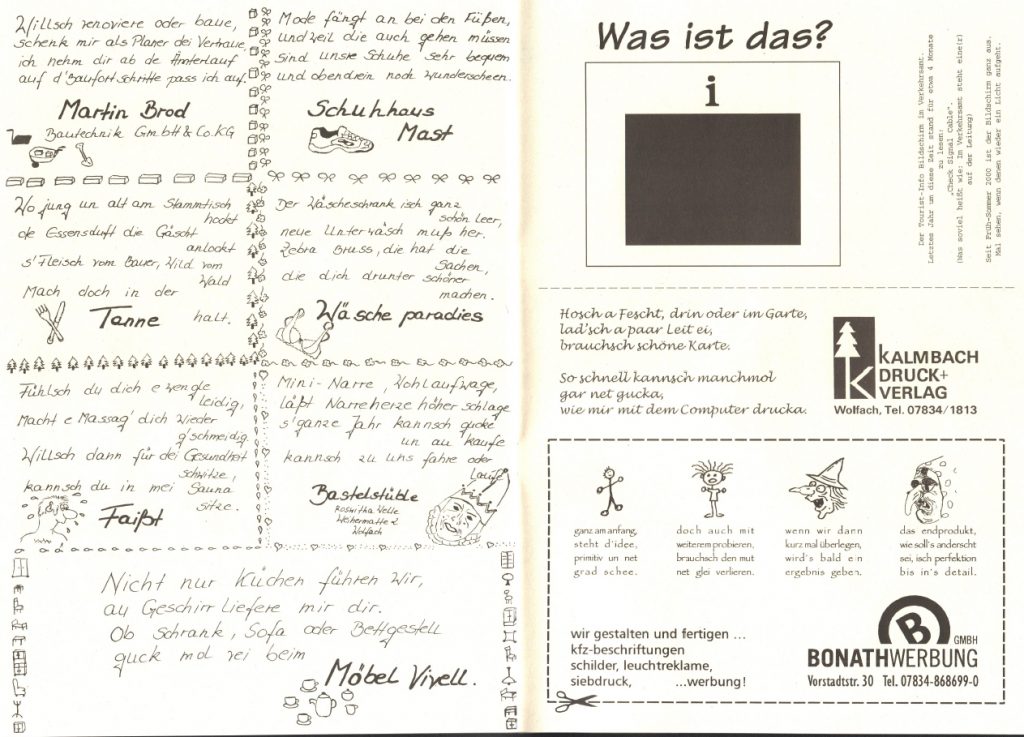 Willsch renoviere oder baue,
schenk mir als Planer dei Vertraue,
ich nehm dir ab de Ämterlauf
auf d'Baufortschritte pass ich auf.
Martin Brod
Bautechnik GmbH & Co.KG
Mode fängt an bei den Füßen,
und weil die auch gehen müssen
Sind unsre Schuhe sehr bequem
und obendrein noch wunderscheen.
Schuhhaus
Mast
Wo jung un alt am Stammtisch
hockt
de Essensduft die Gäscht
anlockt
s'Fleisch vom Bauer, Wild vom
Wald
Mach doch in der
Tanne halt.
Der Wäscheschrank isch ganz
schön leer,
neue Unterwäsch muß her.
Zebra Bruss, die hat die
Sachen,
die dich drunter schöner
machen.
Wäsche paradies
Fühlsch du dich e wengle
leidig,
Macht e Massag' dich wieder
g'schmeidig.
Willsch dann für dei Gesundheit
schwitze,
kannsch du in mei Sauna
sitze.
Faißt
Mini-Narre, Wohlaufwage,
läßt Narreherze höher schlage
s'ganze Jahr kannsch gucke
un au kaufe
kannsch zu uns fahre oder
laufe
Bastelstüble
Roswitha Welle
Wehermatte 2
Wolfach
Nicht nur Küchen führen wir,
au Geschirr liefere mir dir.
Ob Schrank, Sofa oder Bettgestell
guck mol rei beim
Möbel Vivell.
Was ist das?
i
Der Tourist-Info Bildschirm im Verkehrsamt.
Letztes Jahr um diese Zeit stand für etwa 4 Monate
zu lesen:
"Check Signal Cable".
(Was soviel heißt wie: Im Verkehrsamt steht eine(r)
auf der Leitung)
Seit Früh-Sommer 2000 ist der Bildschirm ganz aus.
Mal sehen, wenn denen wieder ein Licht aufgeht.
Hosch a Fescht, drin oder im Garte,
lad'sch a paar Leit ei,
brauchsch schöne Karte.
So schnell kannsch manchmol
gar net gucka,
wie mir mit dem Computer drucka.
K
KALMBACH
DRUCK+
VERLAG
Wolfach, Tel. 07834/1813
ganz am anfang,
steht d'idee,
primitiv un net
grad schee.
doch auch mit
weiterem probieren,
brauchsch den mut
net glei verlieren.
wenn wir dann
kurz mal überlegen,
wird's bald ein
ergebnis geben.
das endprodukt,
wie soll's anderscht
sei, isch perfektion
bis in's detail.
wir gestalten und fertigen ...
kfz-beschriftungen
schilder, leuchtreklame,
siebdruck, ...werbung!
B
GMBH
BONATHWERBUNG
Vorstadtstr. 30 Tel. 07834-868699-0